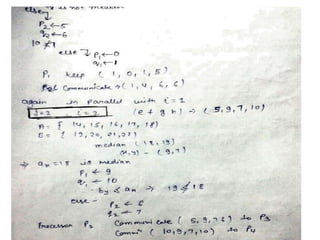 It is not median
else
P2 ← 5
q2 ← 6
10 ≠ 9
else P1 ← 0
q1 ← 1
P1 keep (1, 0, 1, 5)
P2( Communicate → (1, 4, 6, 6)
again in Parallel with i = 2
i = 2 (e f g h) → (5, 9, 7, 10)
A = { 14, 15, 16, 17, 18}
B = { 19, 20, 21, 22}
median (18, 19)
(x, y) - (9, 7)
⇒ ax = 18 is median
P1 ← 9
q1 ← 10
by ≤ ax ⇒ 19 ≰ 18
else - P2 ← 6
q2 ← 7
Processor P2 Communicate (5, 9, 7, 6) to P3
Comm' (10, 9, 7, 10) to P4